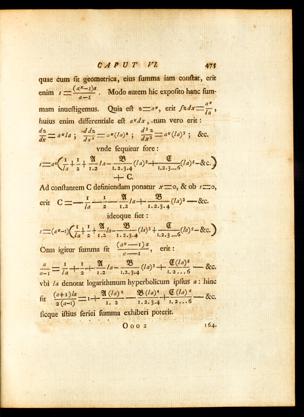 CAPUT VI. 475
quae cum sit geometrica, eius summa iam constat, erit
enim s = (a^x − 1)a / (a − 1). Modo autem hic exposito hanc sum-
mam inuestigemus. Quia est z = a^x, erit ∫z dx = a^x / la,
huius enim differentiale est a^x dx, tum vero erit:
dz/dx = a^x la; ddz/dx² = a^x (la)²; d³z/dx³ = a^x (la)³; &c.
vnde sequitur fore:
s = a^x (1/la + 1/2 + 𝔄/1.2 la − 𝔅/1.2.3.4 (la)³ + ℭ/1.2.3...6 (la)⁵ − &c.)
+ C.
Ad constantem C definiendam ponatur x = 0, & ob s = 0,
erit C = − 1/la − 1/2 − 𝔄/1.2 la + 𝔅/1.2.3.4 (la)³ − &c.
ideoque fiet:
s = (a^x − 1)(1/la + 1/2 + 𝔄/1.2 la − 𝔅/1.2.3.4 (la)³ + ℭ/1.2.3...6 (la)⁵ − &c.)
Cum igitur summa sit (a^x − 1)a / (a − 1), erit:
a/(a − 1) = 1/la + 1/2 + 𝔄/1.2 la − 𝔅/1.2.3.4 (la)³ + ℭ(la)⁵/1.2...6 − &c.
vbi la denotat logarithmum hyperbolicum ipsius a: hinc
fit (a + 1)la / 2(a − 1) = 1 + 𝔄(la)²/1.2 − 𝔅(la)⁴/1.2.3.4 + ℭ(la)⁶/1.2...6 − &c.
sicque istius seriei summa exhiberi poterit.
Ooo 2 164.